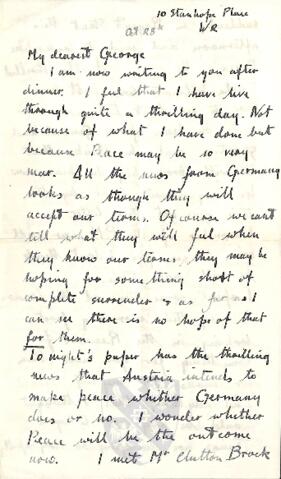 10 Stanhope Place
W2
Oct 28th
My dearest George
I am now writing to you after
dinner. I feel that I have live
through quite a thrilling day. Not
because of what I have done but
because Peace may be so very
near. All the news from Germany
looks as though they will
accept our terms. Of course we can't
tell what they will feel when
they know our terms, they may be
hoping for something short of
complete surrender & as far as I
can see there is no hope of that
for them.
To night's paper has the thrilling
news that Austria intends to
make peace whether Germany
does or no. I wonder whether
Peace will be the outcome
now. I met Mr Clutton Brock